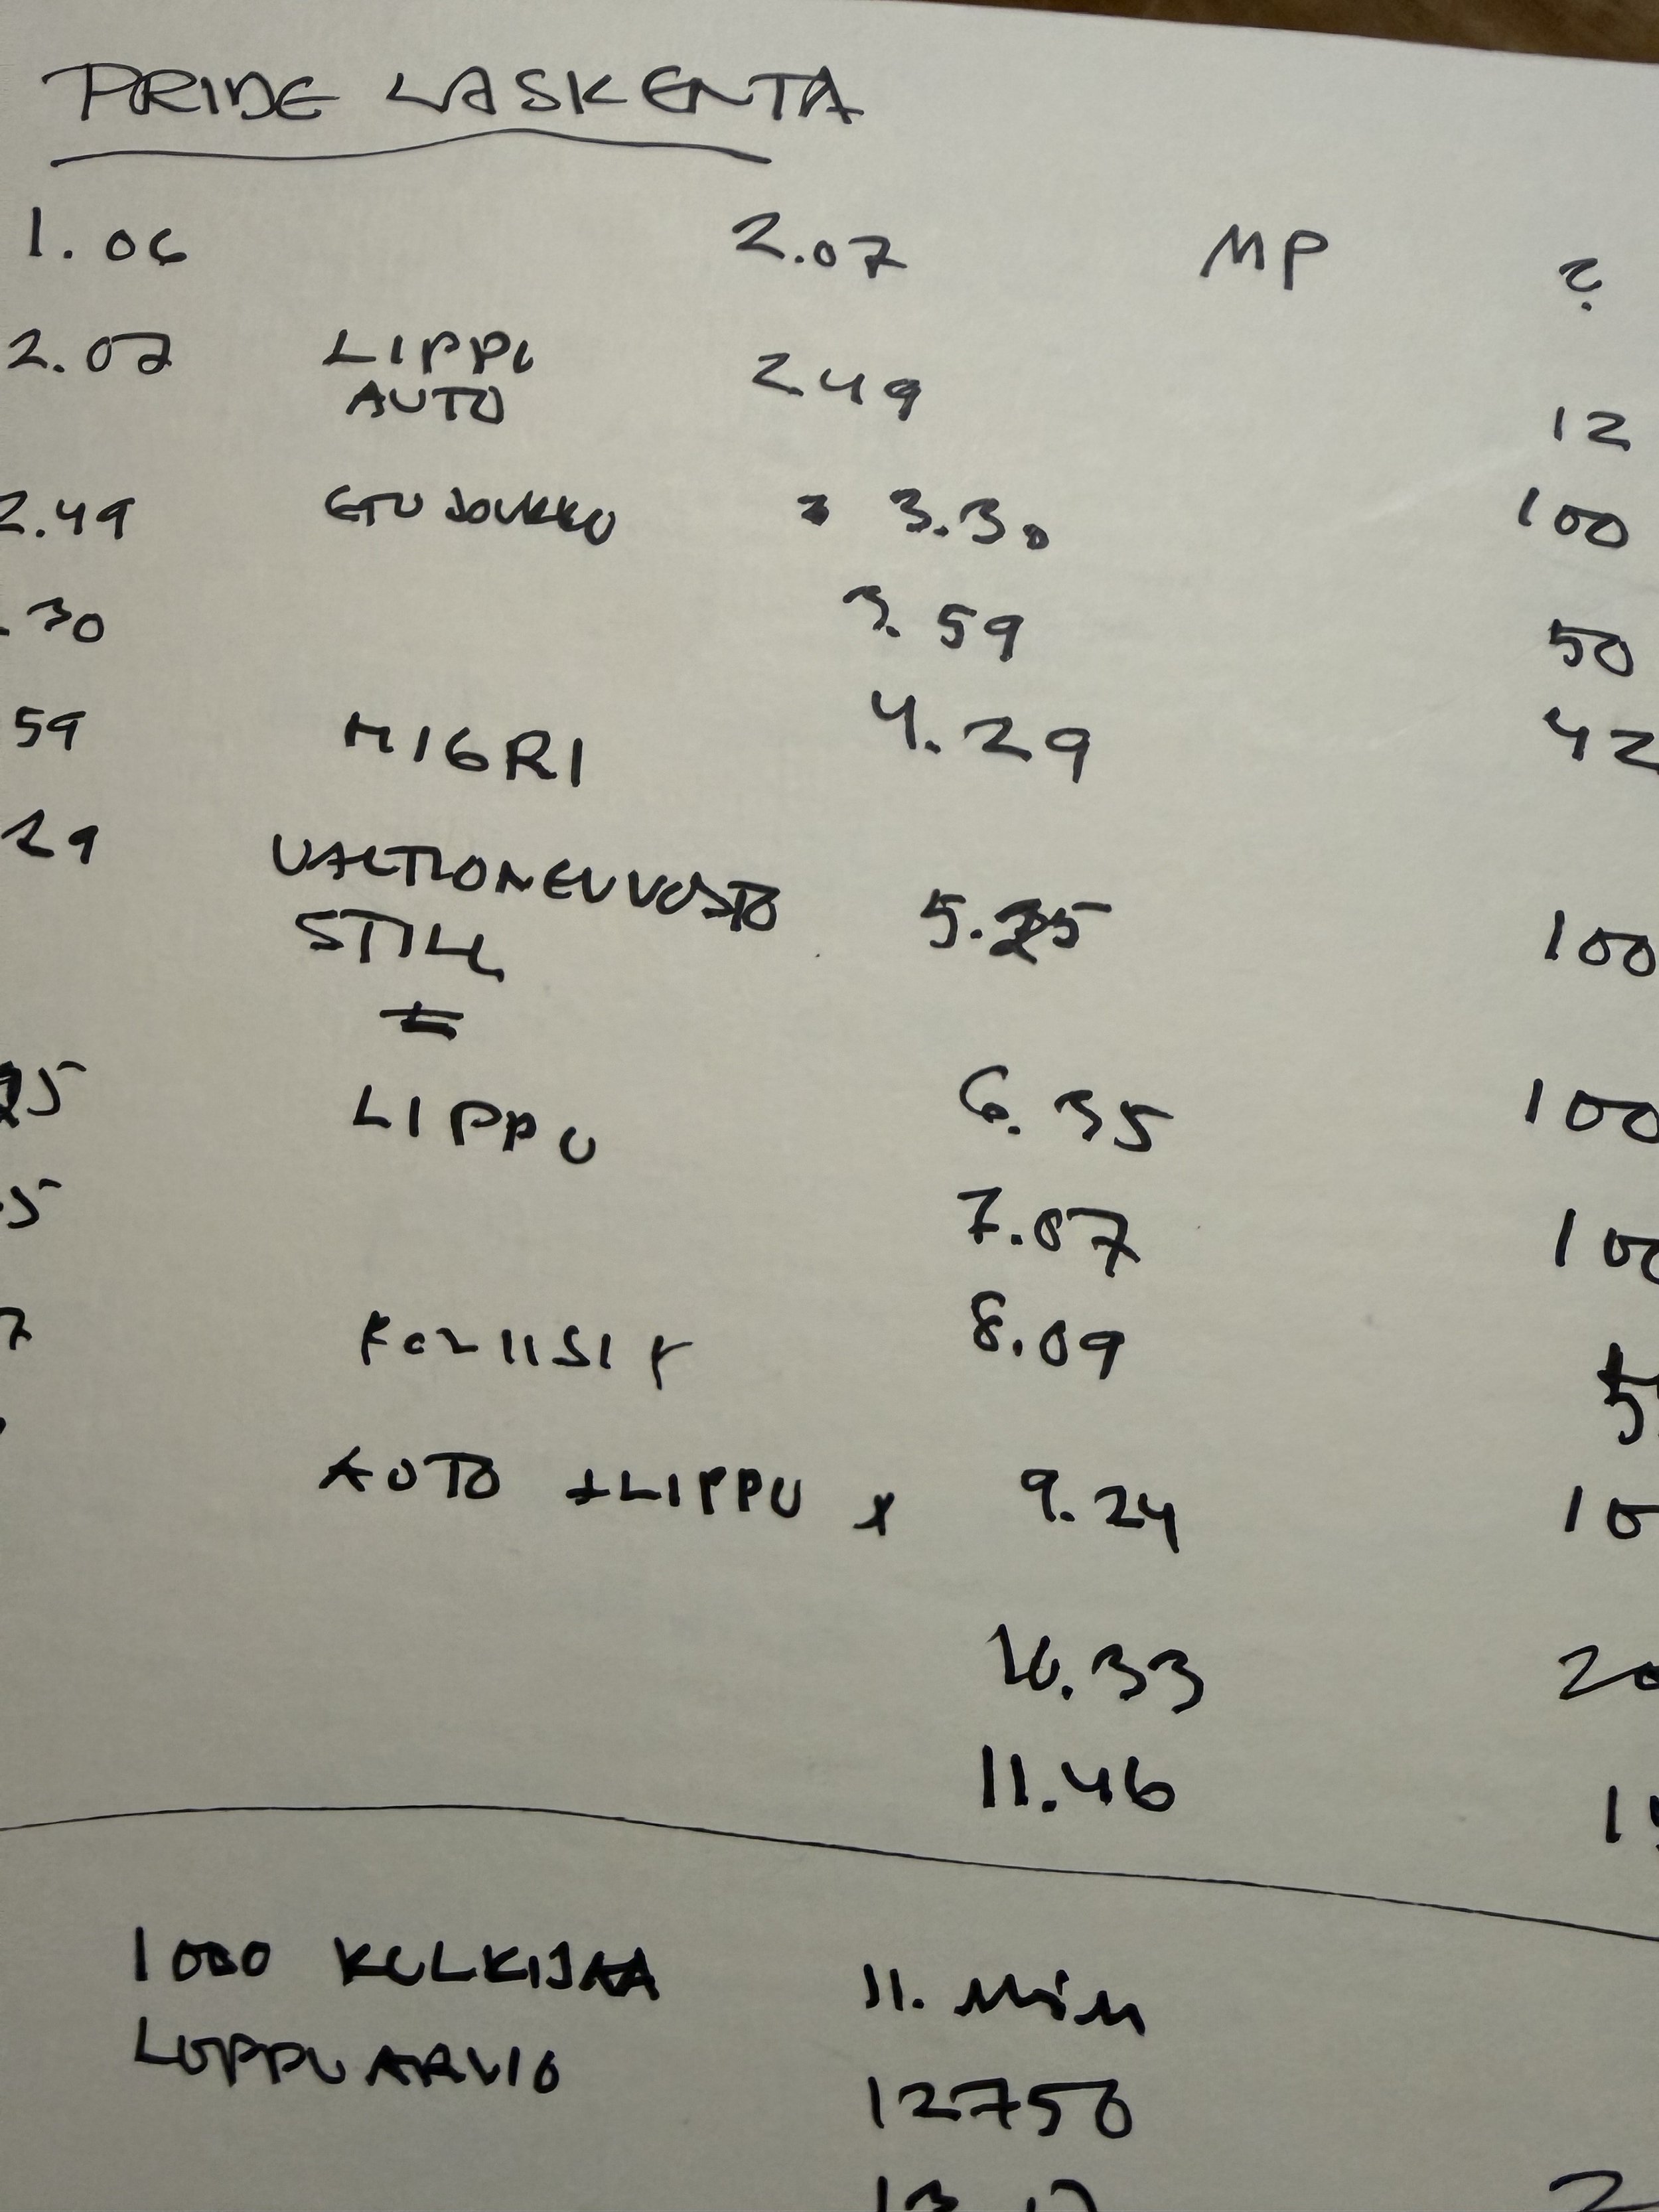 PRIDE LASKENTA
1.06 2.07 MP ?
2.07 LIPPU 249 12
AUTO
2.49 ETUJOUKKO 3.30 100
.30 3.59 50
59 MIGRI 4.29 42
29 VALTIONEUVOSTO 5.25 100
25 LIPPU 6.35 100
5 7.07 100
7 8.09
AUTO + LIPPU x 9.24 10
10.33 20
11.46
1000 KULKIJAA 11. min
LOPPU ARVIO 12750